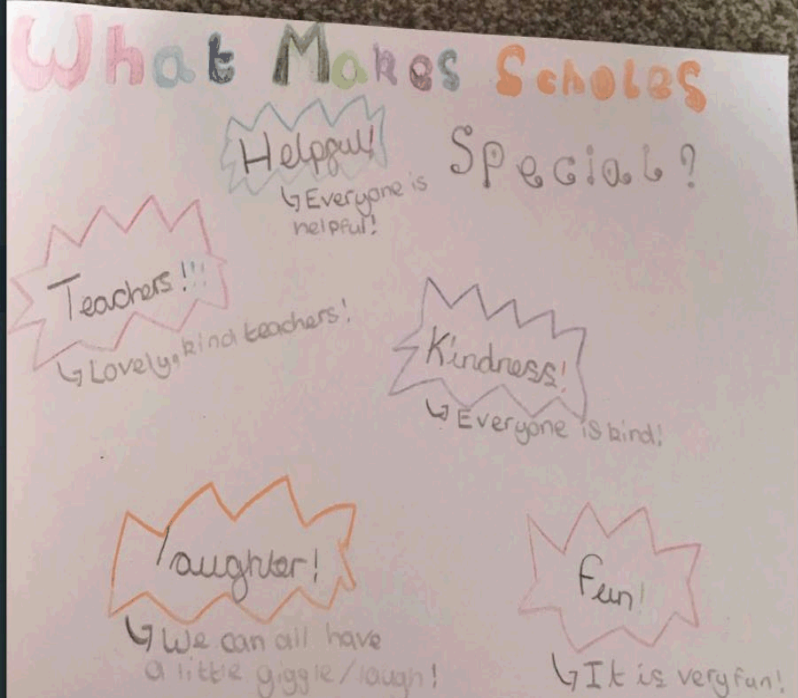 What Makes Scholes
Special?
Helpful!
↳Everyone is
helpful!
Teachers!!!
↳Lovely, kind teachers!
Kindness!
↳Everyone is kind!
laughter!
↳We can all have
a little giggle/laugh!
Fun!
↳It is very fun!